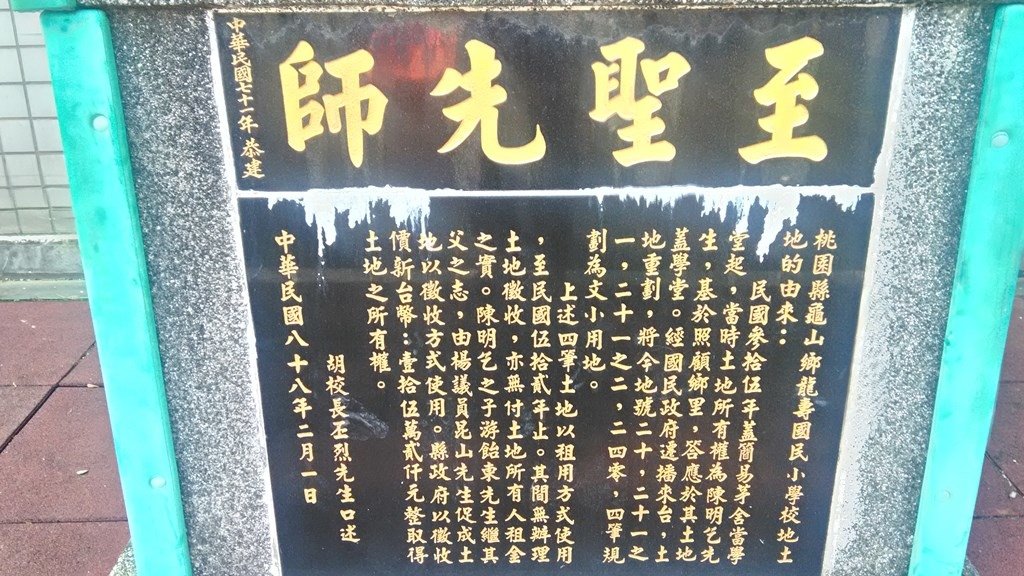 至聖先師
中華民國七十一年 恭建
桃園縣龜山鄉龍壽國民小學校地土
地的由來：
民國參拾伍年蓋簡易茅舍當學
堂起，當時土地所有權為陳明乞先
生，基於照顧鄉里，答應於其土地
蓋學堂。經國民政府遷播來台，土
地重劃，將今地號二十，二十一之
一，二十一之二，二四零，四筆規
劃為文小用地。
上述四筆土地以租用方式使用
，至民國伍拾貳年止。其間無辦理
土地徵收，亦無付土地所有人租金
之實。陳明乞之子游飴東先生繼其
父之志，由楊議員昆山先生促成土
地以徵收方式使用。縣政府以徵收
價新台幣：壹拾伍萬貳仟元整取得
土地之所有權。
胡校長玉烈先生口述
中華民國八十八年二月一日